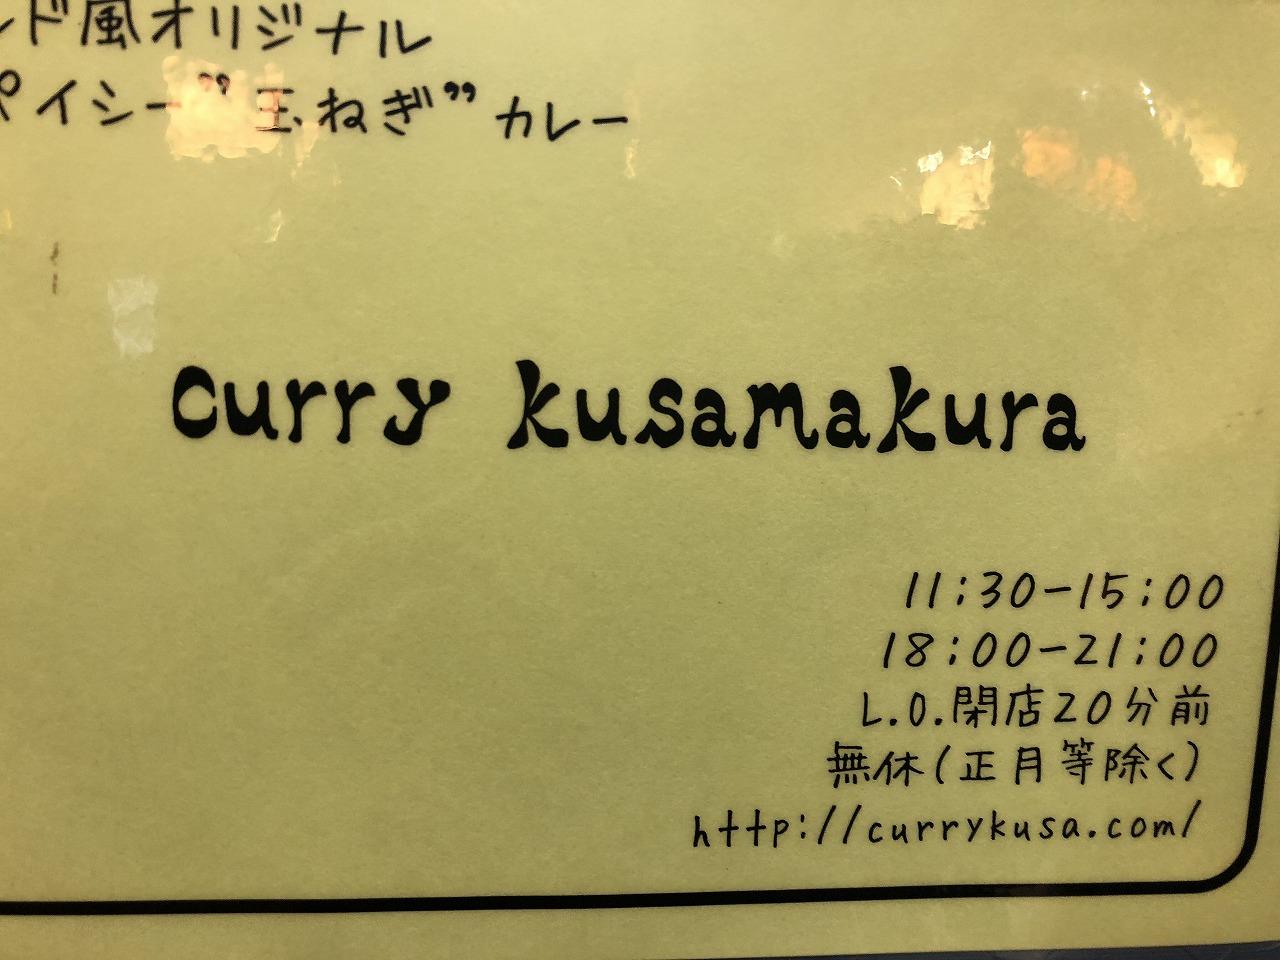 ンド風オリジナル
パイシー”玉ねぎ”カレー
curry kusamakura
11:30-15:00
18:00-21:00
L.O.閉店20分前
無休(正月等除く)
http://currykusa.com/